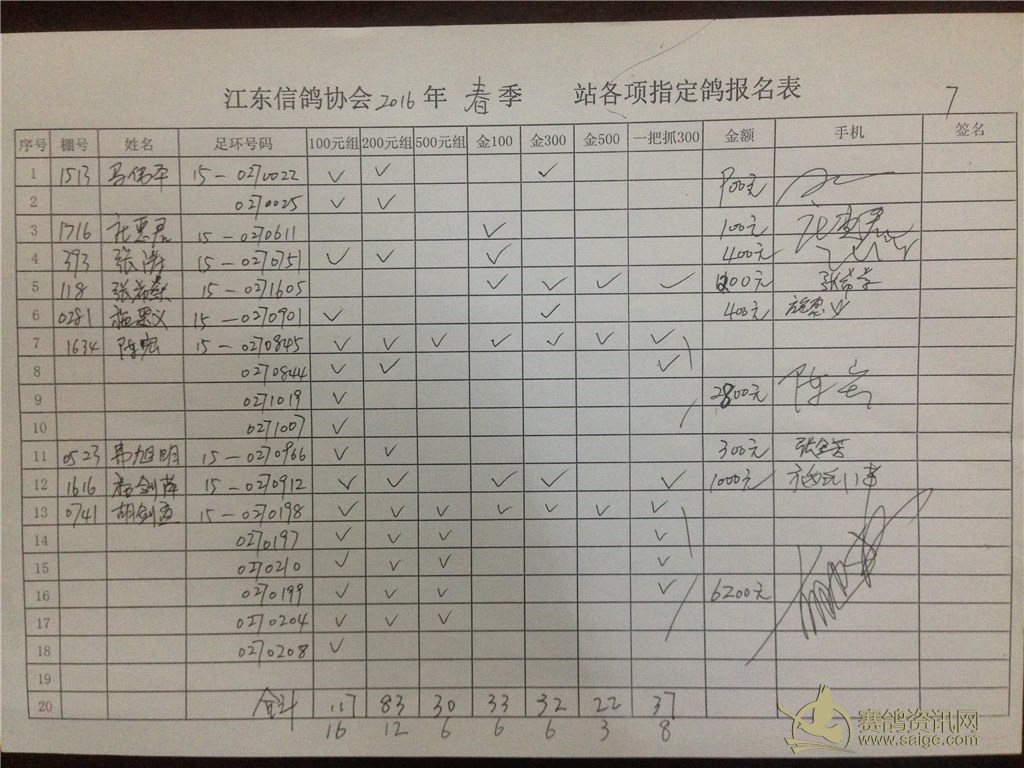 江东信鸽协会2016年 春季 站各项指定鸽报名表 7
序号 棚号 姓名 足环号码 100元组 200元组 500元组 金100 金300 金500 一把抓300 金额 手机 签名
1 1513 马伟平 15-0270022 ✓ ✓ ✓ 900元
2 0270025 ✓ ✓
3 1716 15-0270611 ✓ 100元
4 393 张涛 15-0270751 ✓ ✓ ✓ 400元
5 118 15-0271605 ✓ ✓ ✓ ✓
6 0281 15-0270901 ✓ ✓ 400元
7 1634 陈宏 15-0270845 ✓ ✓ ✓ ✓ ✓ ✓ ✓
8 0270844 ✓ ✓ ✓
9 0271019 ✓ 2800元
10 0271007 ✓
11 0523 15-0270966 ✓ ✓ 300元
12 1616 15-0270912 ✓ ✓ ✓ ✓ ✓ 1000元
13 0741 15-0270198 ✓ ✓ ✓ ✓ ✓ ✓ ✓
14 0270197 ✓ ✓ ✓ ✓
15 0270210 ✓ ✓ ✓ ✓
16 0270199 ✓ ✓ ✓ ✓ 6200元
17 0270204 ✓ ✓ ✓
18 0270208 ✓
19
20 合计 117 83 30 33 32 22 37
16 12 6 6 6 3 8
赛鸽资讯网
www.saige.com